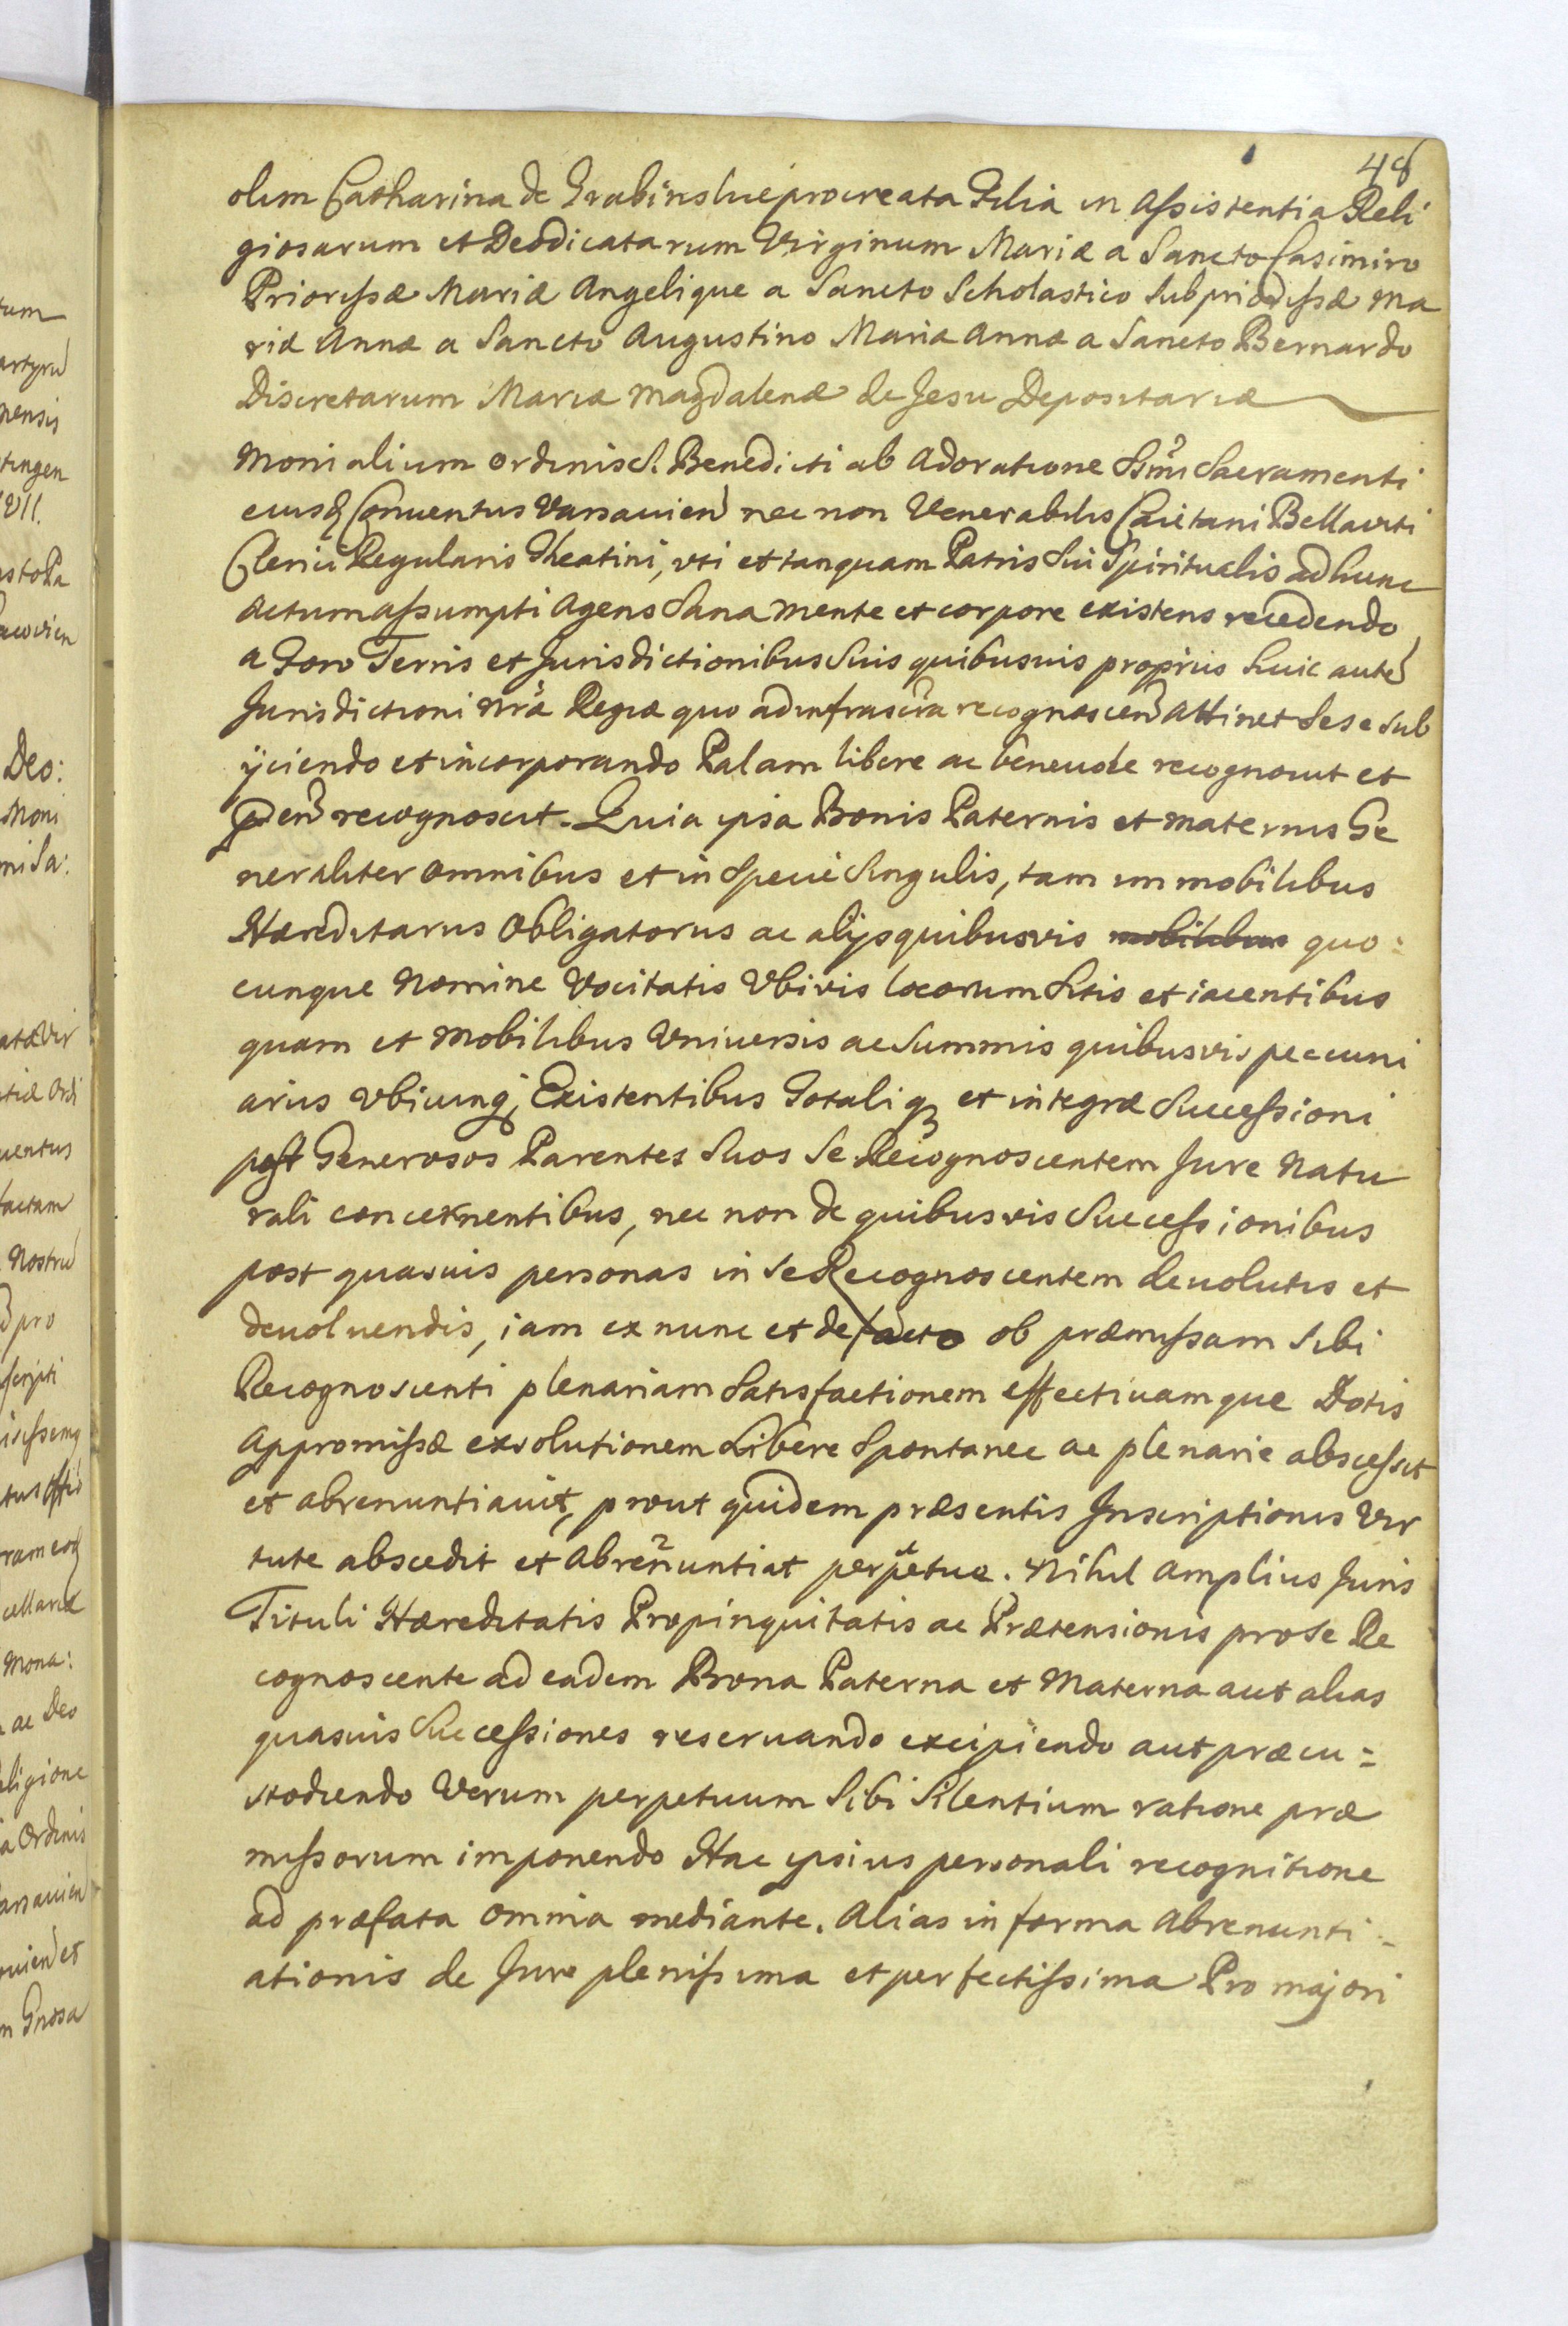 48
olim Catharina de Grabinskie procreata Filia in Assistentia Reli
giosarum et Deodicatarum Virginum Mariæ a Sancto Casimiro
Priorissæ Mariæ Angelique a Sancto Scholastico Subpriorissæ Ma
riæ Annæ a Sancto Augustino Mariæ Annæ a Sancto Bernardo
Discretarum Mariæ Magdalenæ de Jesu Depositariæ
Monialium Ordinis S. Benedicti ab Adoratione Ssmi Sacramenti
eiusq Conuentus Varsauien nec non Venerabilis Caietani Bellaviti
Clerici Regularis Theatini, vti et tanquam Patris Sui Spiritualis ad hunc
actum assumpti Agens Sana Mente et corpore existens recedendo
a Foro Terris et Jurisdictionibus Suis quibusuis propriis huic aute
Jurisdictioni nrã Regiæ quo ad infrascra recognoscen Attinet Sese Sub
ijciendo et incorporando Palam libere ac beneuole recognouit et
pnen recognoscit. Quia ipsa Bonis Paternis et maternis Ge
neraliter omnibus et in Specie Singulis, tam immobilibus
Hæreditariis Obligatoriis ac alijs quibusvis mobilibus quo:
cunque Nomine Vocitatis Vbivis locorum Sitis et iacentibus
quam et Mobilibus Vniuersis ac Summis quibusvis peccuni
ariis vbicunq Existentibus Totaliq et integræ Successioni
post Generosos Parentes Suos Se Recognoscentem Jure Natu
rali concernentibus, nec non de quibusvis Successionibus
post quasuis personas in Se Recognoscentem deuolutis et
deuoluendis, iam ex nunc et de facto ob præmissam Sibi
Recognoscenti plenariam Satisfactionem effectiuamque Dotis
Appromissæ exsolutionem Libere Spontanee ac plenarie abscessit
et abrenuntiauit, prout quidem præsentis Inscriptionis Vir
tute abscedit et Abrenuntiat perpetue. Nihil amplius Juris
Tituli Hæreditatis Propinquitatis ac Prætensionis pro se Re
cognoscente ad eadem Bona Paterna et Materna aut alias
quasuis Successiones reseruando excipiendo aut præcu:
stodiendo Verum perpetuum Sibi Silentium ratione præ
missorum imponendo Hac ipsius personali recognitione
ad præfata omnia mediante. Alias in forma Abrenunti:
ationis de Jure plenissima et perfectissima Pro majori